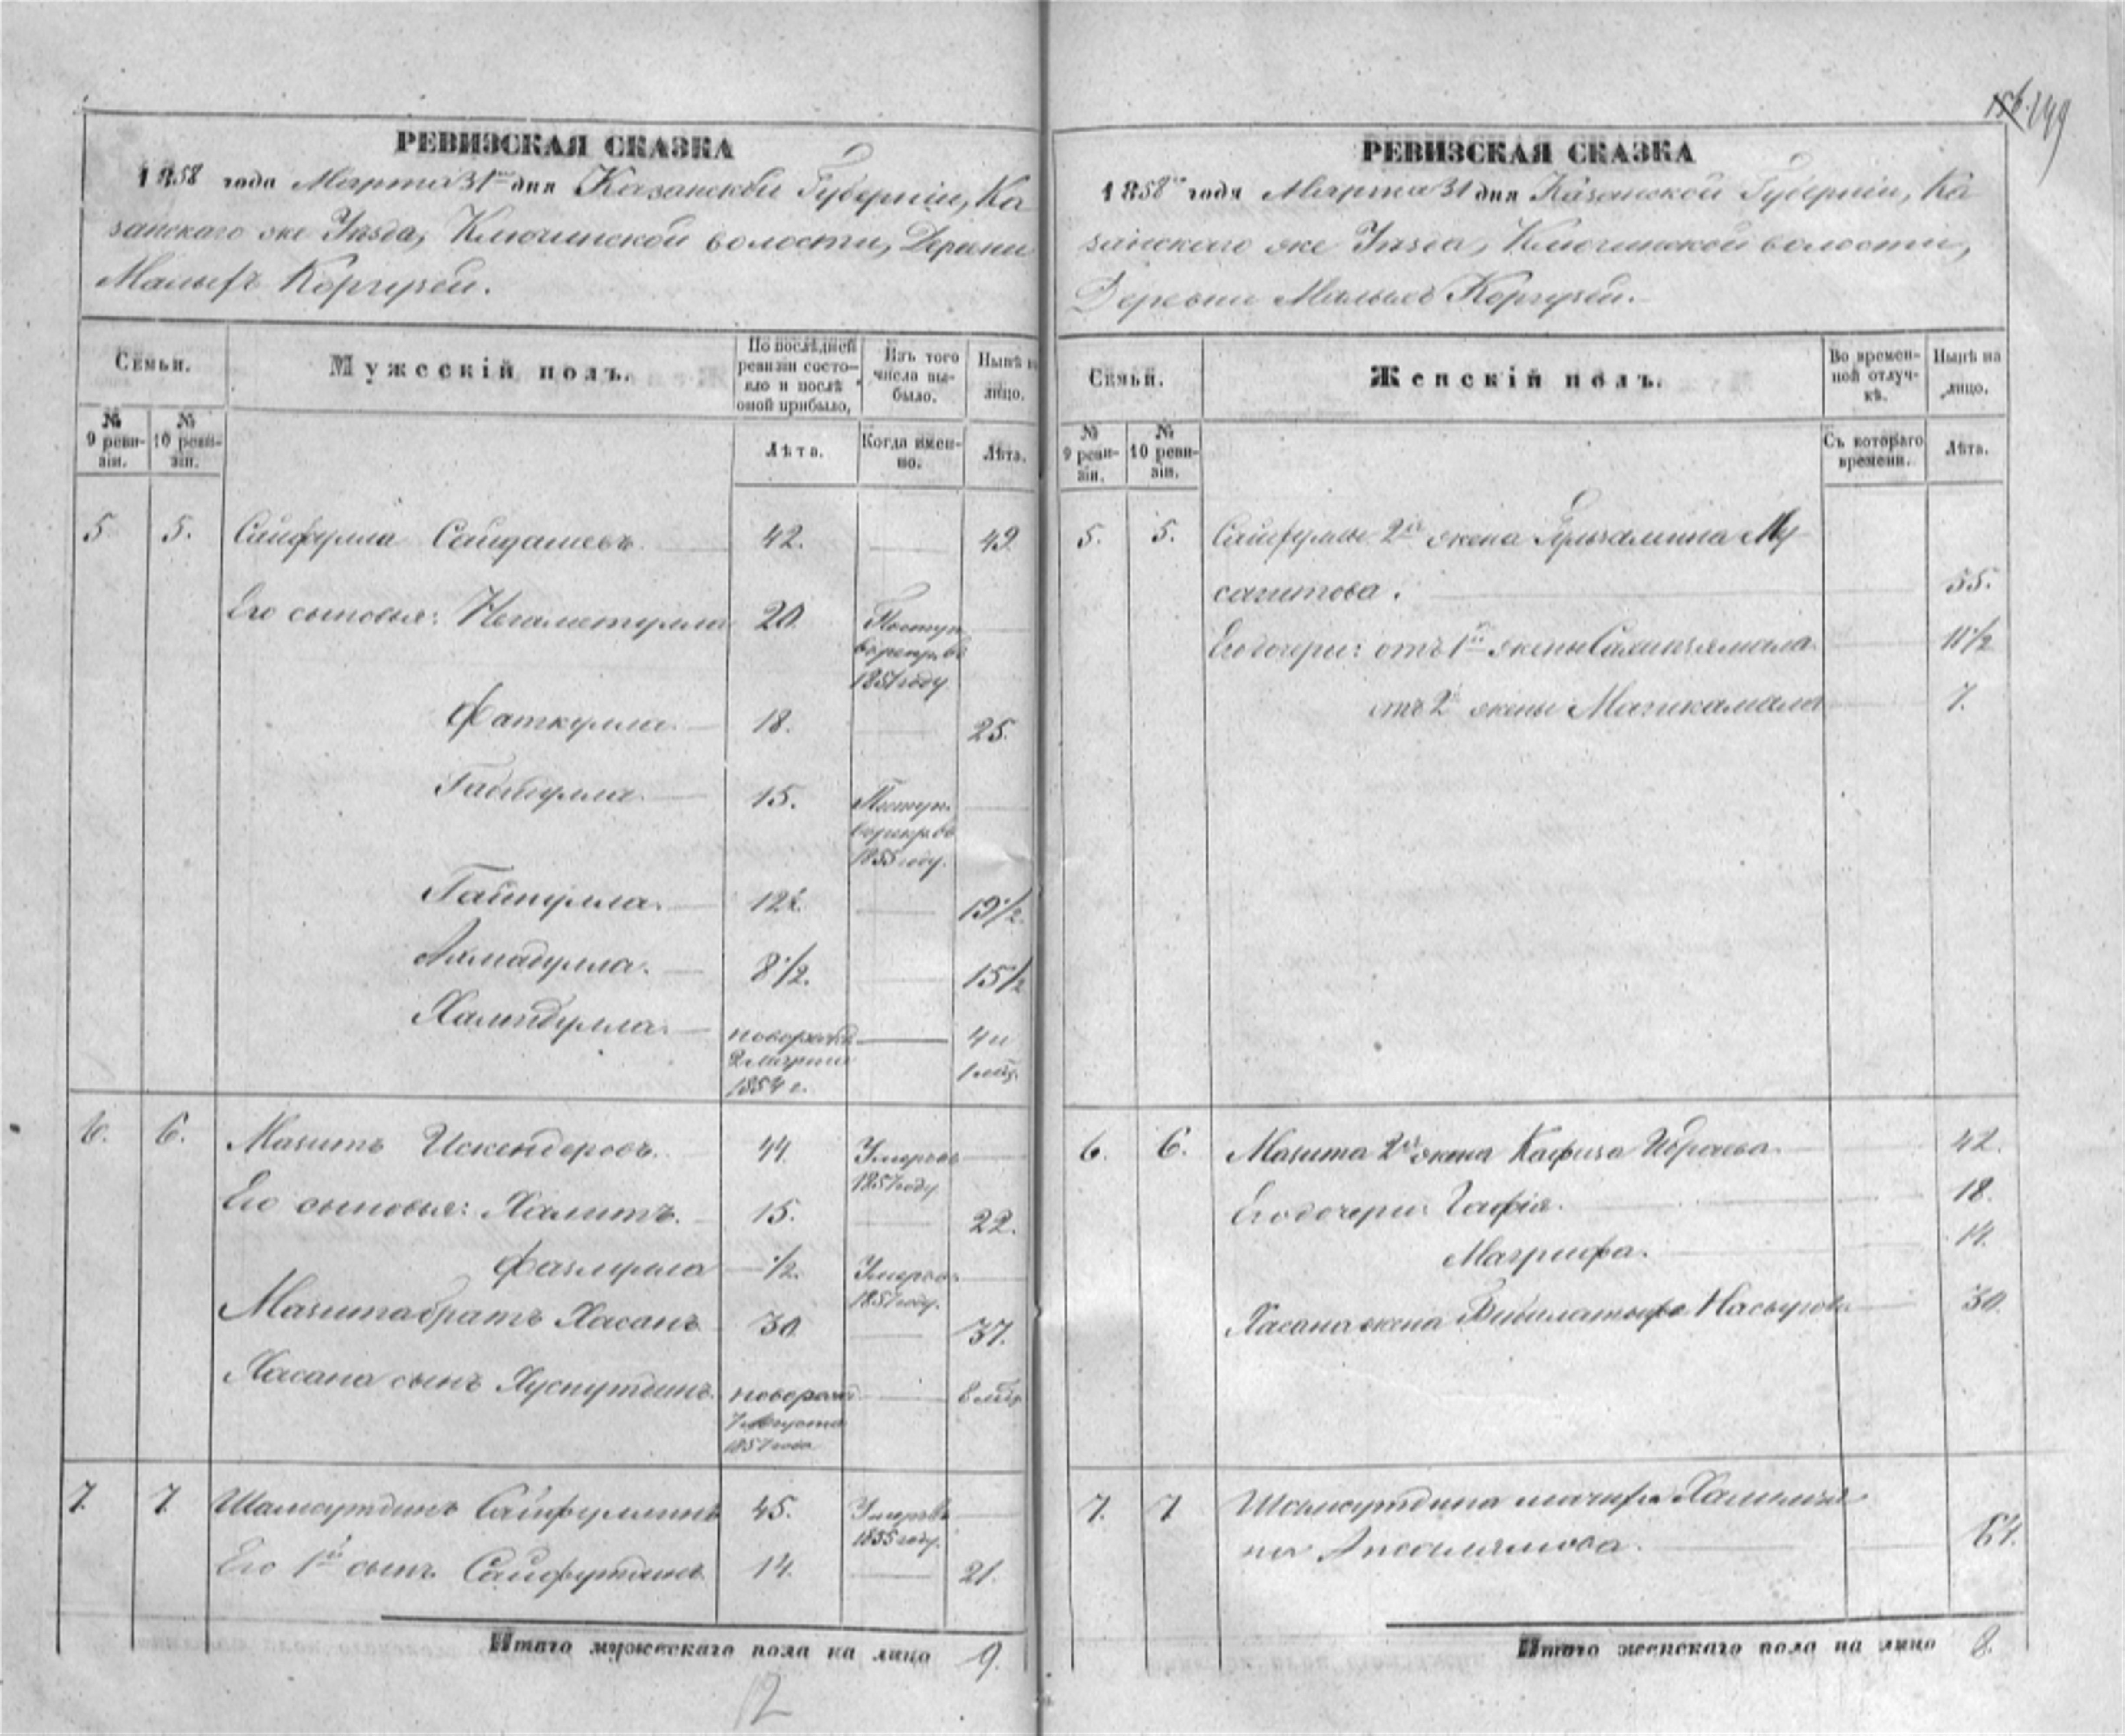 156. 249
РЕВИЗСКАЯ СКАЗКА
1858 года Марта 31 дня Казанской Губерніи, Ка
занскаго же Уѣзда, Ключинской волости, Деревни
Малыхъ Коргузей.
Семьи.
Мужескій полъ.
По послѣдней ревизіи состояло и послѣ оной прибыло,
Изъ того числа выбыло.
Нынѣ на лицо.
№ 9 ревизіи.
№ 10 ревизіи.
Лѣта.
Когда именно.
Лѣта.
5 5. Сайфулла Сайдашевъ 42. 49
Его сыновья: Негаметулла 20
Поступ.
въ рекр. въ
1851 году
Фаткулла 18. 25.
15.
Поступ.
въ рекр. въ
1855 году.
Гайнулла. 12½ 19½.
Ахмадулла. 8½. 15½
новорожд. 4 и
2 марта 1 мѣс.
1854 г.
6. 6. Мазитъ Искендеровъ. 44. Умеръ въ
1857 году
Его сыновья: Халитъ. 15. 22.
Фазлулла ½. Умеръ въ
1851 году.
Мазита братъ Хасанъ 30 37.
Хасана сынъ Хуснутдинъ. новорожд. 8 мѣс.
7 августа
1857 года
7. 7 Шамсутдинъ Сайфуллинъ 45. Умеръ въ
1855 году.
Его 1й сынъ Сайфутдинъ 14. 21.
Итого мужескаго пола на лицо 9.
12
РЕВИЗСКАЯ СКАЗКА
1858го года Марта 31 дня Казанской Губерніи, Ка
занскаго же Уѣзда, Ключинской волости,
Деревни Малыхъ Коргузей.
Семьи.
Женскій полъ.
Во временной отлучкѣ.
Нынѣ на лицо.
№ 9 ревизіи.
№ 10 ревизіи.
Съ котораго времени.
Лѣта.
5. 5. Сайфуллы 2я жена Му
сагитова. 55.
Его дочери: отъ 1й жены 11½
отъ 2й жены 7.
6. 6. Мазита 2я жена 42.
Его дочери: Гафія. 18.
Магрифа. 14.
Хасана жена Насырова 30.
7. 7 Шамсутдина
64.
Итого женскаго пола на лицо 8.